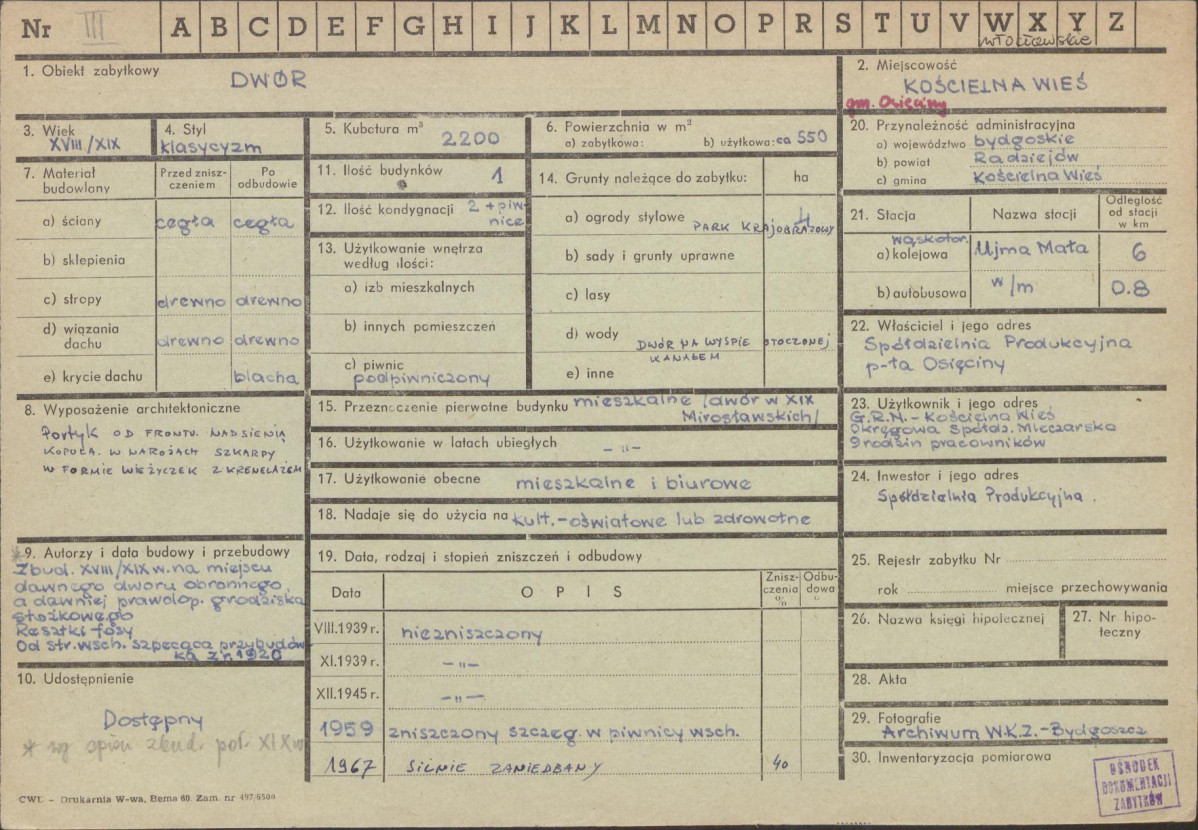 Nr III A B C D E F G H I J K L M N O P R S T U V W X Y Z
włocławskie
1. Obiekt zabytkowy
DWÓR
2. Miejscowość
KOŚCIELNA WIEŚ
gm. Osięciny
3. Wiek
XVIII/XIX
4. Styl
klasycyzm
5. Kubatura m³
2200
6. Powierzchnia w m²
a) zabytkowa: b) użytkowa: ca 550
7. Materiał budowlany
Przed zniszczeniem
Po odbudowie
a) ściany cegła cegła
b) sklepienia
c) stropy drewno drewno
d) wiązania dachu drewno drewno
e) krycie dachu blacha
8. Wyposażenie architektoniczne
PORTYK OD FRONTU. NAD SIENIĄ
KOPUŁA. W NAROŻACH SZKARPY
W FORMIE WIEŻYCZEK Z KRENELAŻEM
* 9. Autorzy i data budowy i przebudowy
Zbud. XVIII/XIX w. na miejscu
dawnego dworu obronnego,
a dawniej prawdop. grodziska
stożkowego
Resztki fosy
Od str. wsch. szpecąca przybudów-
ka z r. 1920
10. Udostępnienie
Dostępny
* wg opisu zbud. poł. XIX w
11. Ilość budynków 1
12. Ilość kondygnacji 2 + piw-
nice
13. Użytkowanie wnętrza
według ilości:
a) izb mieszkalnych
b) innych pomieszczeń
c) piwnic
podpiwniczony
14. Grunty należące do zabytku: ha
a) ogrody stylowe 4
PARK KRAJOBRAZOWY
b) sady i grunty uprawne
c) lasy
d) wody DWÓR NA WYSPIE OTOCZONEJ
KANAŁEM
e) inne
15. Przeznaczenie pierwotne budynku mieszkalne /dwór w XIX
Mirosławskich/
16. Użytkowanie w latach ubiegłych - " -
17. Użytkowanie obecne mieszkalne i biurowe
18. Nadaje się do użycia na kult.-oświatowe lub zdrowotne
19. Data, rodzaj i stopień zniszczeń i odbudowy
Data
OPIS
Zniszczenia %
Odbudowa
VIII.1939 r. niezniszczony
XI.1939 r. - " -
XII.1945 r. - " -
1959 zniszczony szczeg. w piwnicy wsch.
1967 SILNIE ZANIEDBANY 40
20. Przynależność administracyjna
a) województwo bydgoskie
b) powiat Radziejów
c) gmina Kościelna Wieś
21. Stacja
Nazwa stacji
Odległość
od stacji
w km
wąskotor.
a) kolejowa Ujma Mała 6
b) autobusowa w/m 0.8
22. Właściciel i jego adres
Spółdzielnia Produkcyjna
p-ta Osięciny
23. Użytkownik i jego adres
G.R.N.-Kościelna Wieś
Okręgowa Spółdz. Mleczarska
9 rodzin pracowników
24. Inwestor i jego adres
Spółdzielnia Produkcyjna.
25. Rejestr zabytku Nr
rok miejsce przechowywania
26. Nazwa księgi hipotecznej
27. Nr hipoteczny
28. Akta
29. Fotografie
Archiwum W.K.Z.-Bydgoszcz
30. Inwentaryzacja pomiarowa
OŚRODEK
DOKUMENTACJI
ZABYTKÓW
CWL – Drukarnia W-wa, Bema 60. Zam. nr 497/6500